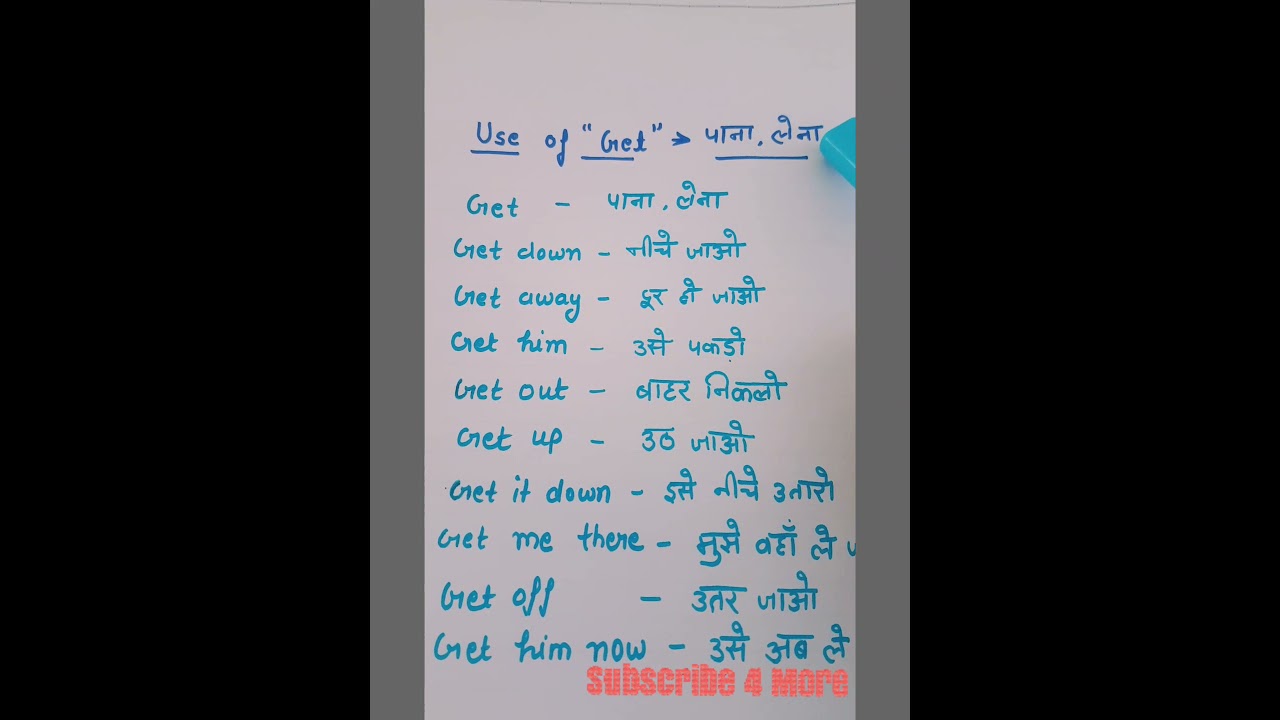 Use of "Get" → पाना, लेना
Get - पाना, लेना
Get down - नीचे जाओ
Get away - दूर हो जाओ
Get him - उसे पकड़ो
Get out - बाहर निकलो
Get up - उठ जाओ
Get it down - इसे नीचे उतारो
Get me there - मुझे वहाँ ले
Get off - उतर जाओ
Get him now - उसे अब ले
Subscribe 4 More